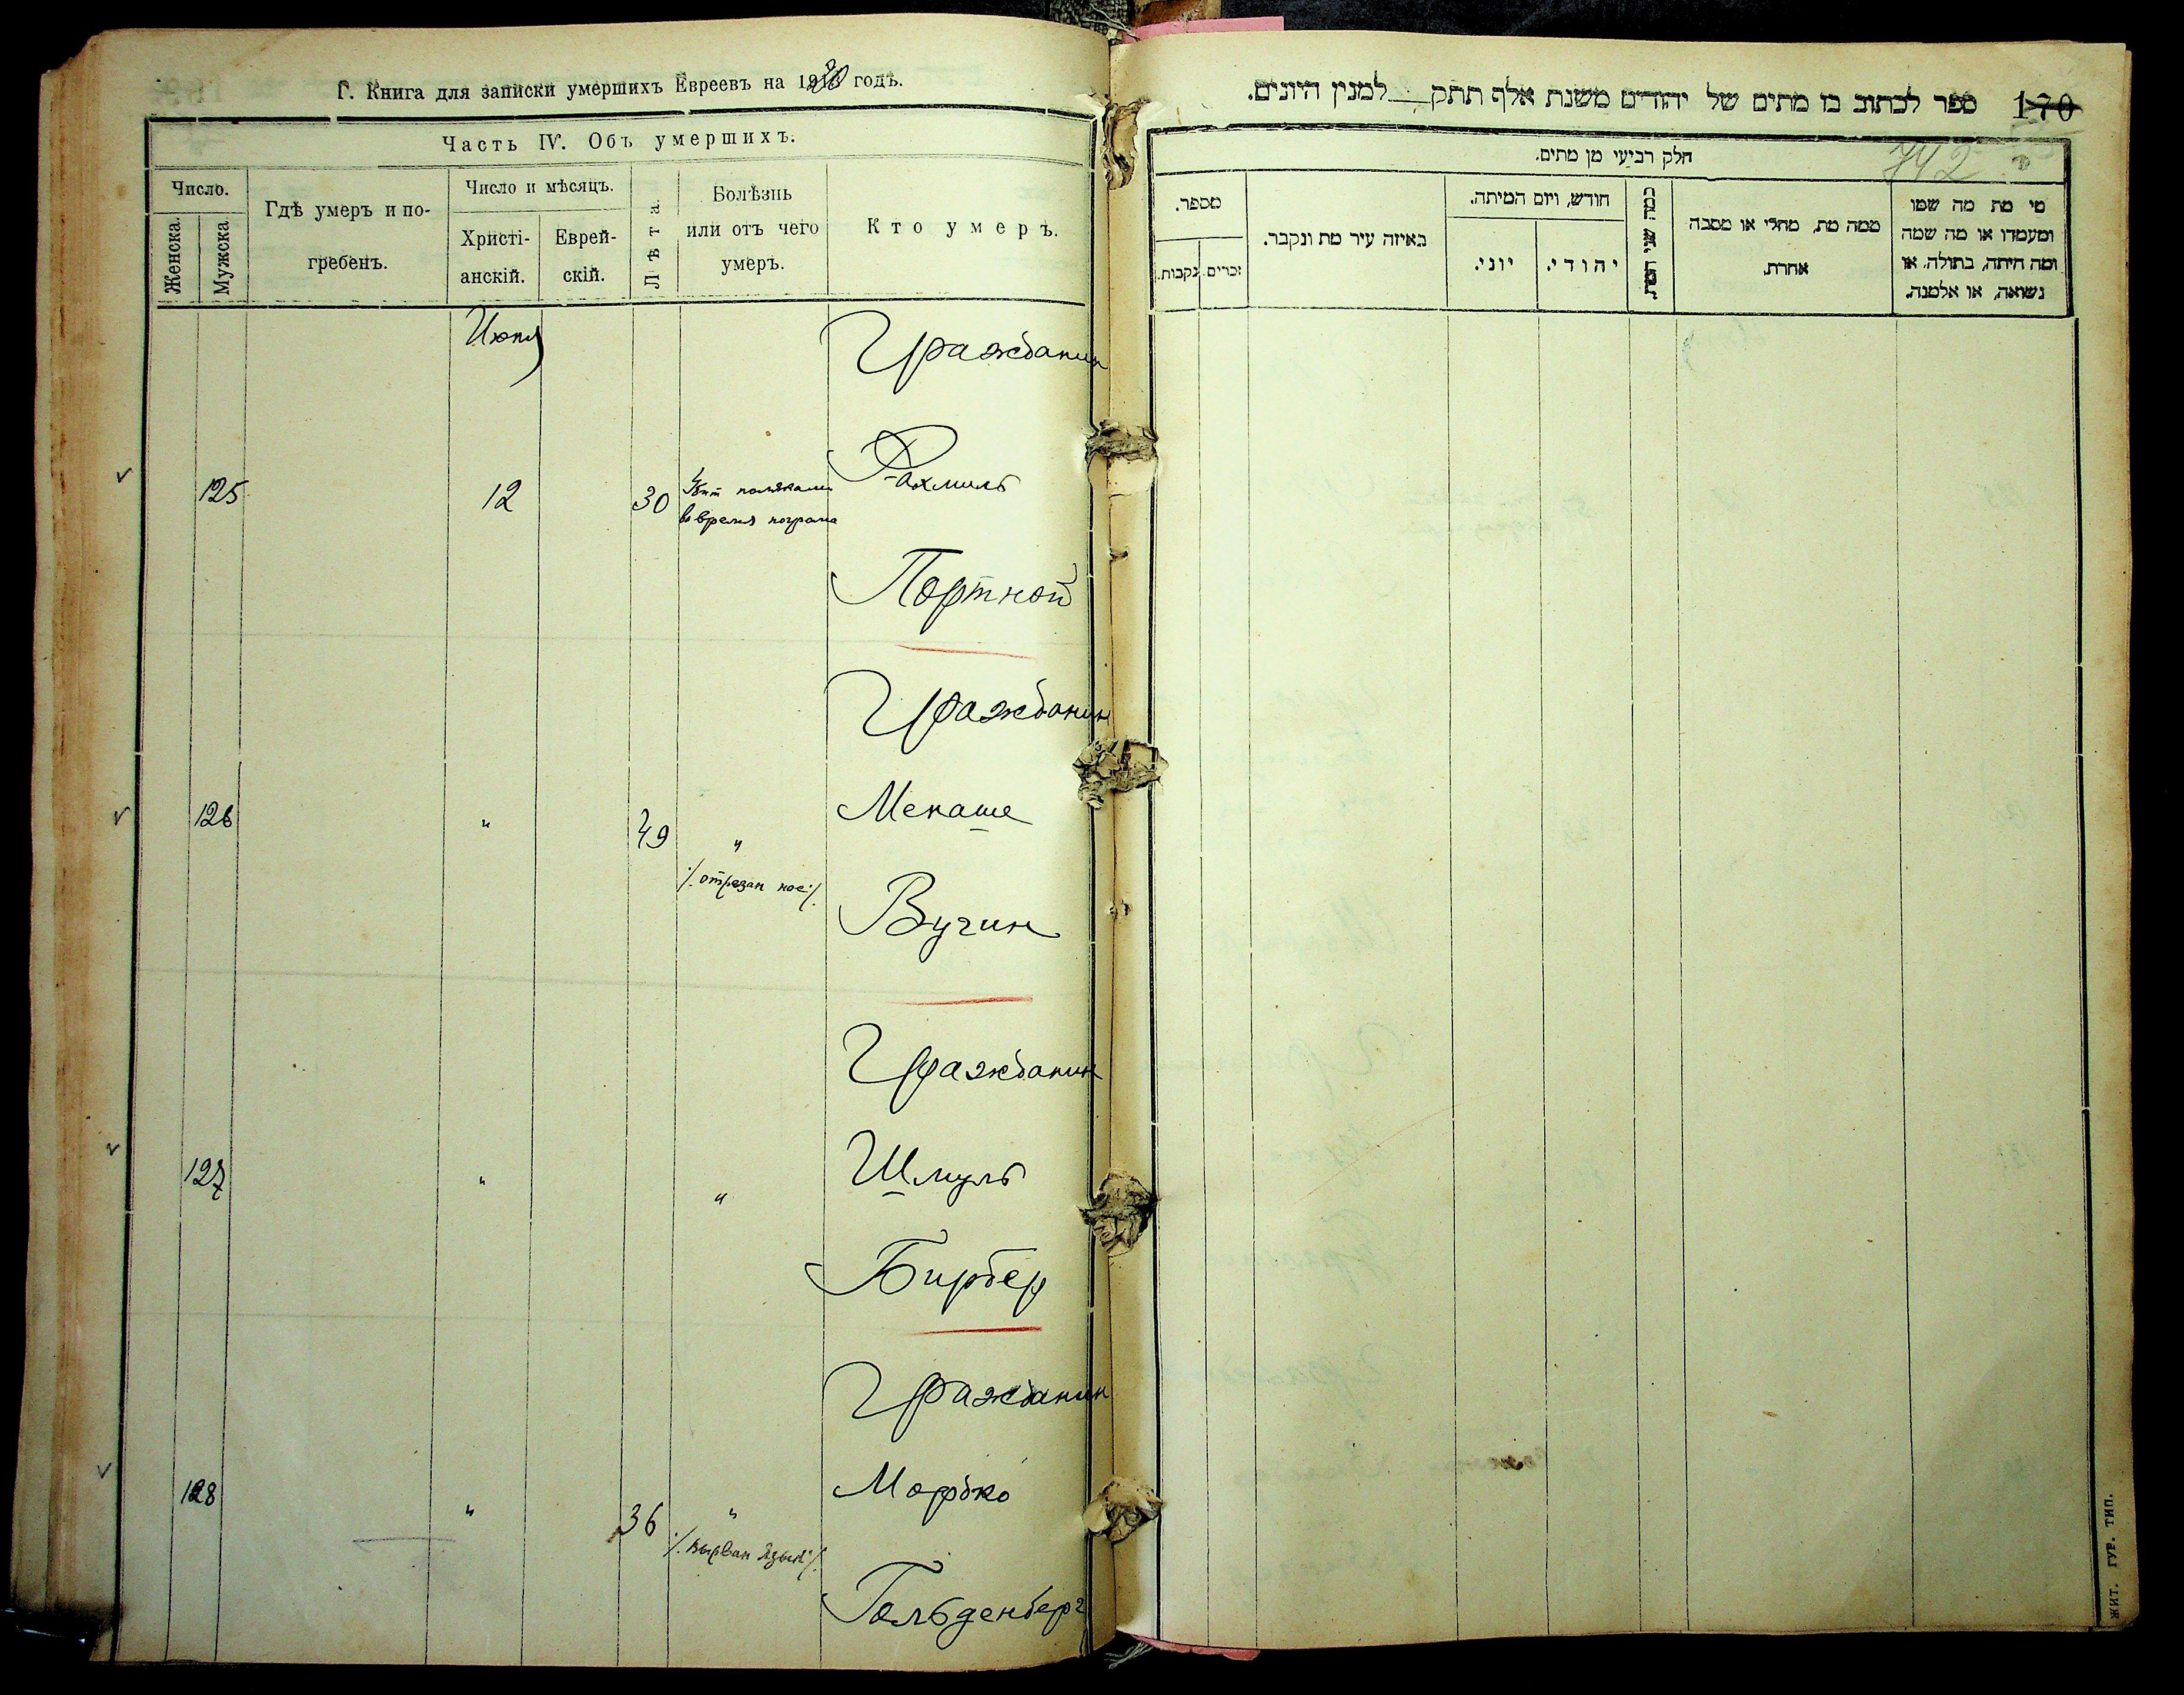 Г. Книга для записки умершихъ Евреевъ на 1920 годъ.
Часть IV. Объ умершихъ.
Число.
Женска.
Мужска
Гдѣ умеръ и по-
гребенъ.
Число и мѣсяцъ.
Христі-
анскій.
Еврей-
скій.
Лѣта.
Болѣзнь
или отъ чего
умеръ.
Кто умеръ.
Июня
Гражданин
125
12
30
Убит поляками
во время погрома
Рахмиль
Портной
Гражданин
126
"
49
"
·/. отрезан нос ·/.
Менаше
Вугин
Гражданин
127
"
"
Шмуль
Бирбер
Гражданин
128
"
36
"
·/. вырван язык ·/.
Мордко
Гольденберг
ספר לכתוב בו מתים של יהודים משנת אלף תתק למנין היונים.
170
742
חלק רביעי מן מתים.
מספר.
זכרים.
נקבות.
באיזה עיר מת ונקבר.
חודש, ויום המיתה.
יוני.
יהודי.
כמה שני המת
ממה מת, מחלי או מסבה
אחרת.
מי מת מה שמו
ומעמדו או מה שמה
ומה היתה, בתולה, או
נשואה, או אלמנה.
ЖИТ. ГУР. ТИП.